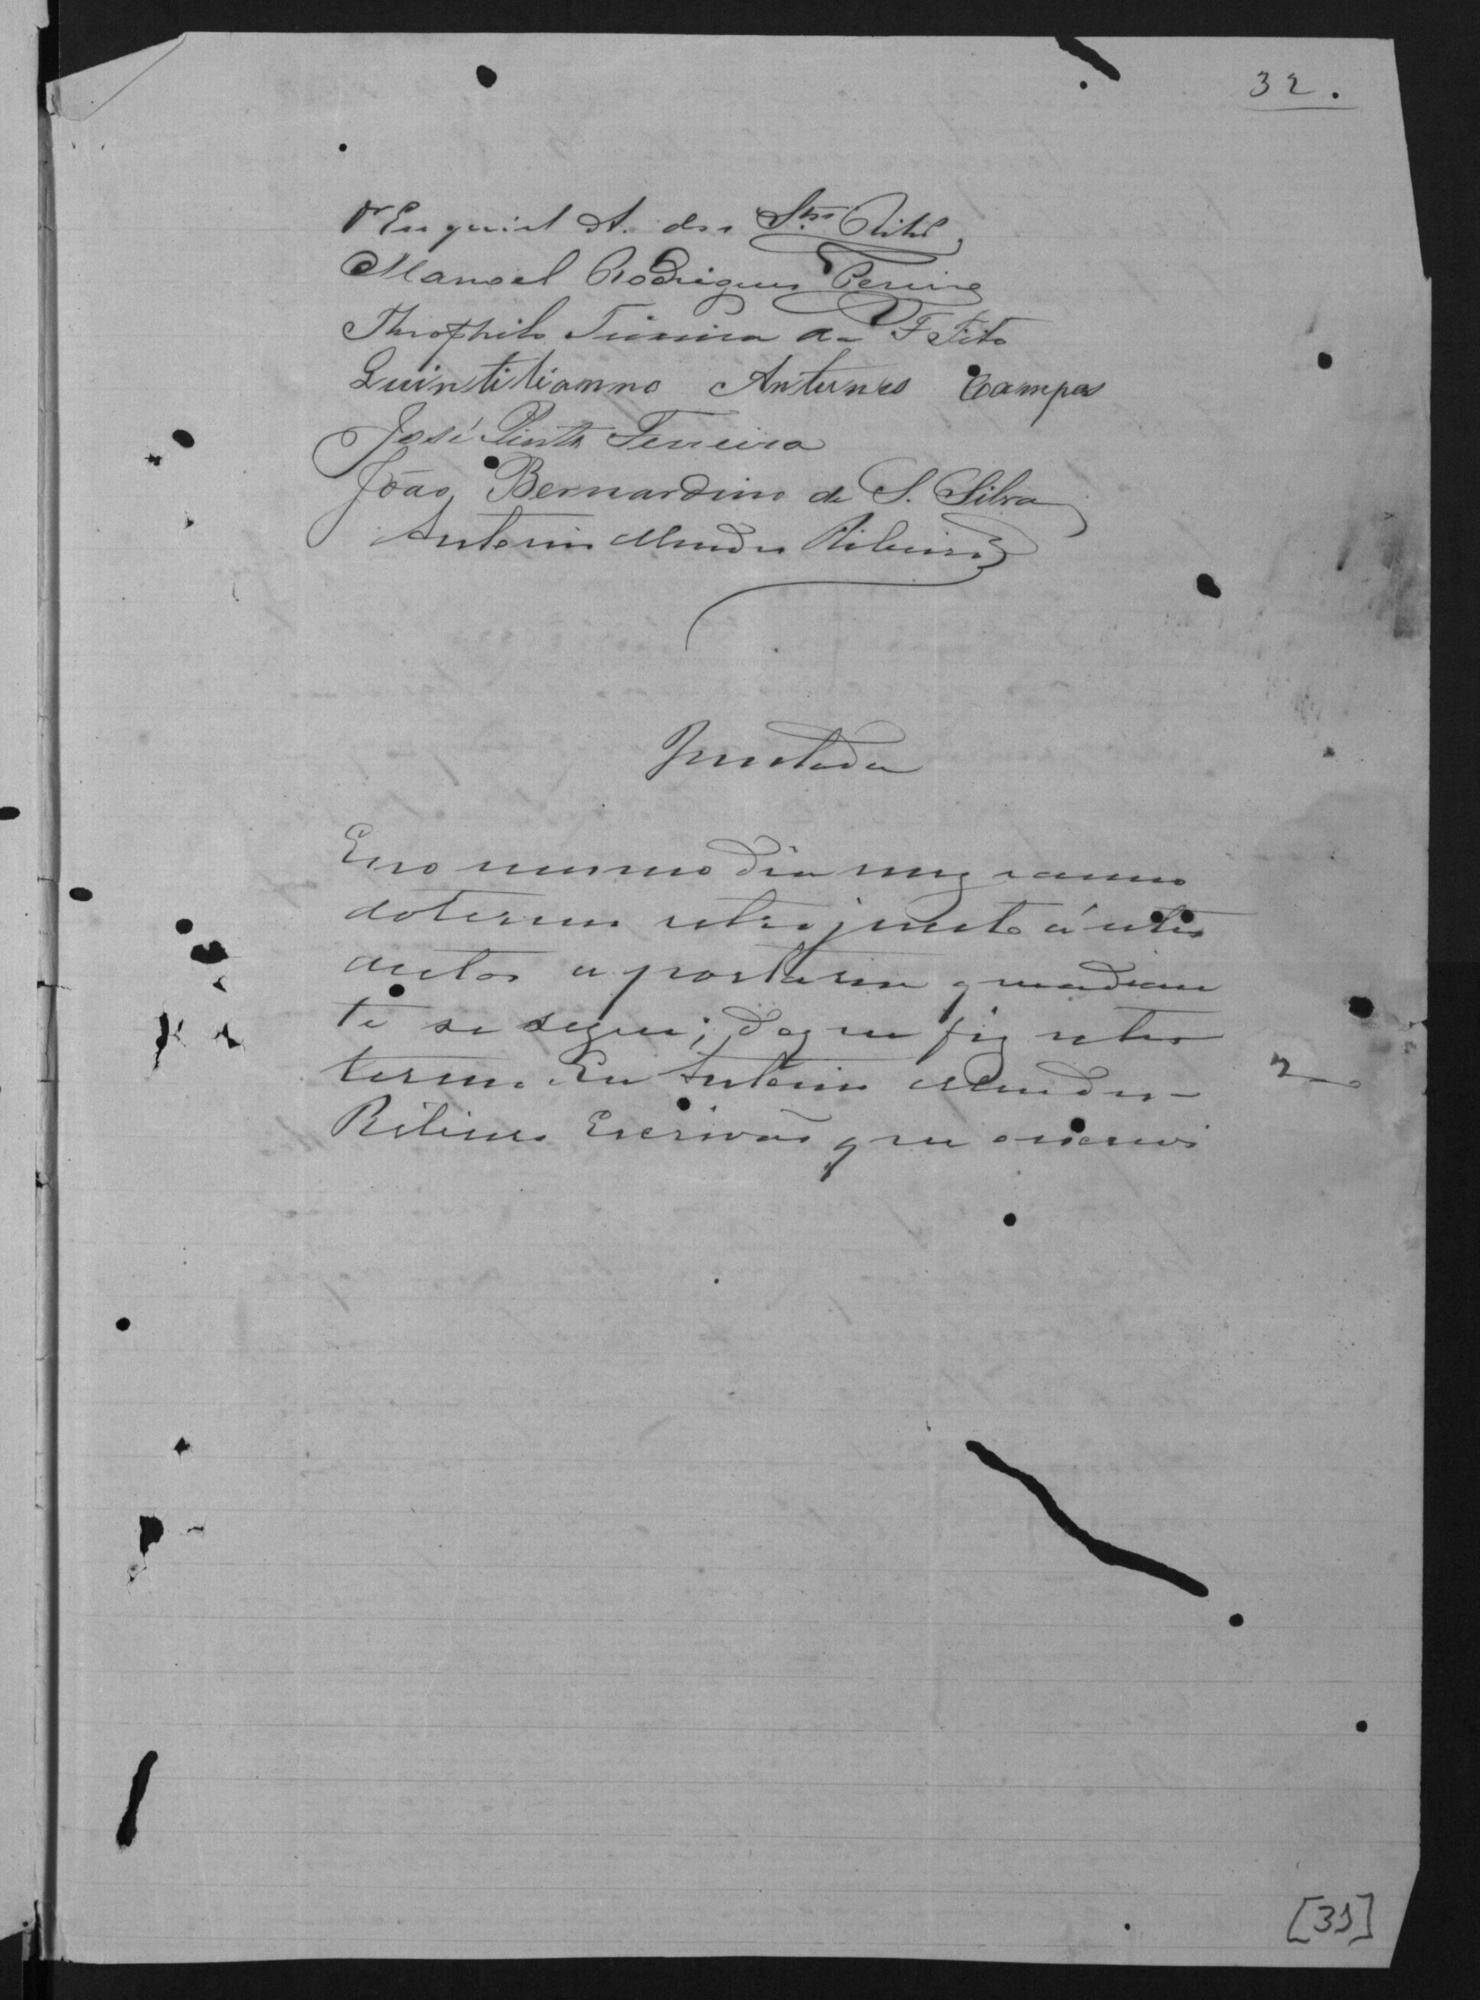 32.
Dr Ezequiel A. dos Stos
Manoel Rodrigues Pereira
Theophilo Teixeira da F Tito
Quintilianno Antunes Campos
José Pinto Ferreira
João Bernardino de S. Silva
Anterio Mendes Ribeiro
Juntada
E no mesmo dia mez e anno
do termo retro junto á estes
autos a portaria q adian
te se segue; do que fiz este
termo. Eu Anterio Mendes
Ribeiro Escrivão que escrevi
[31]